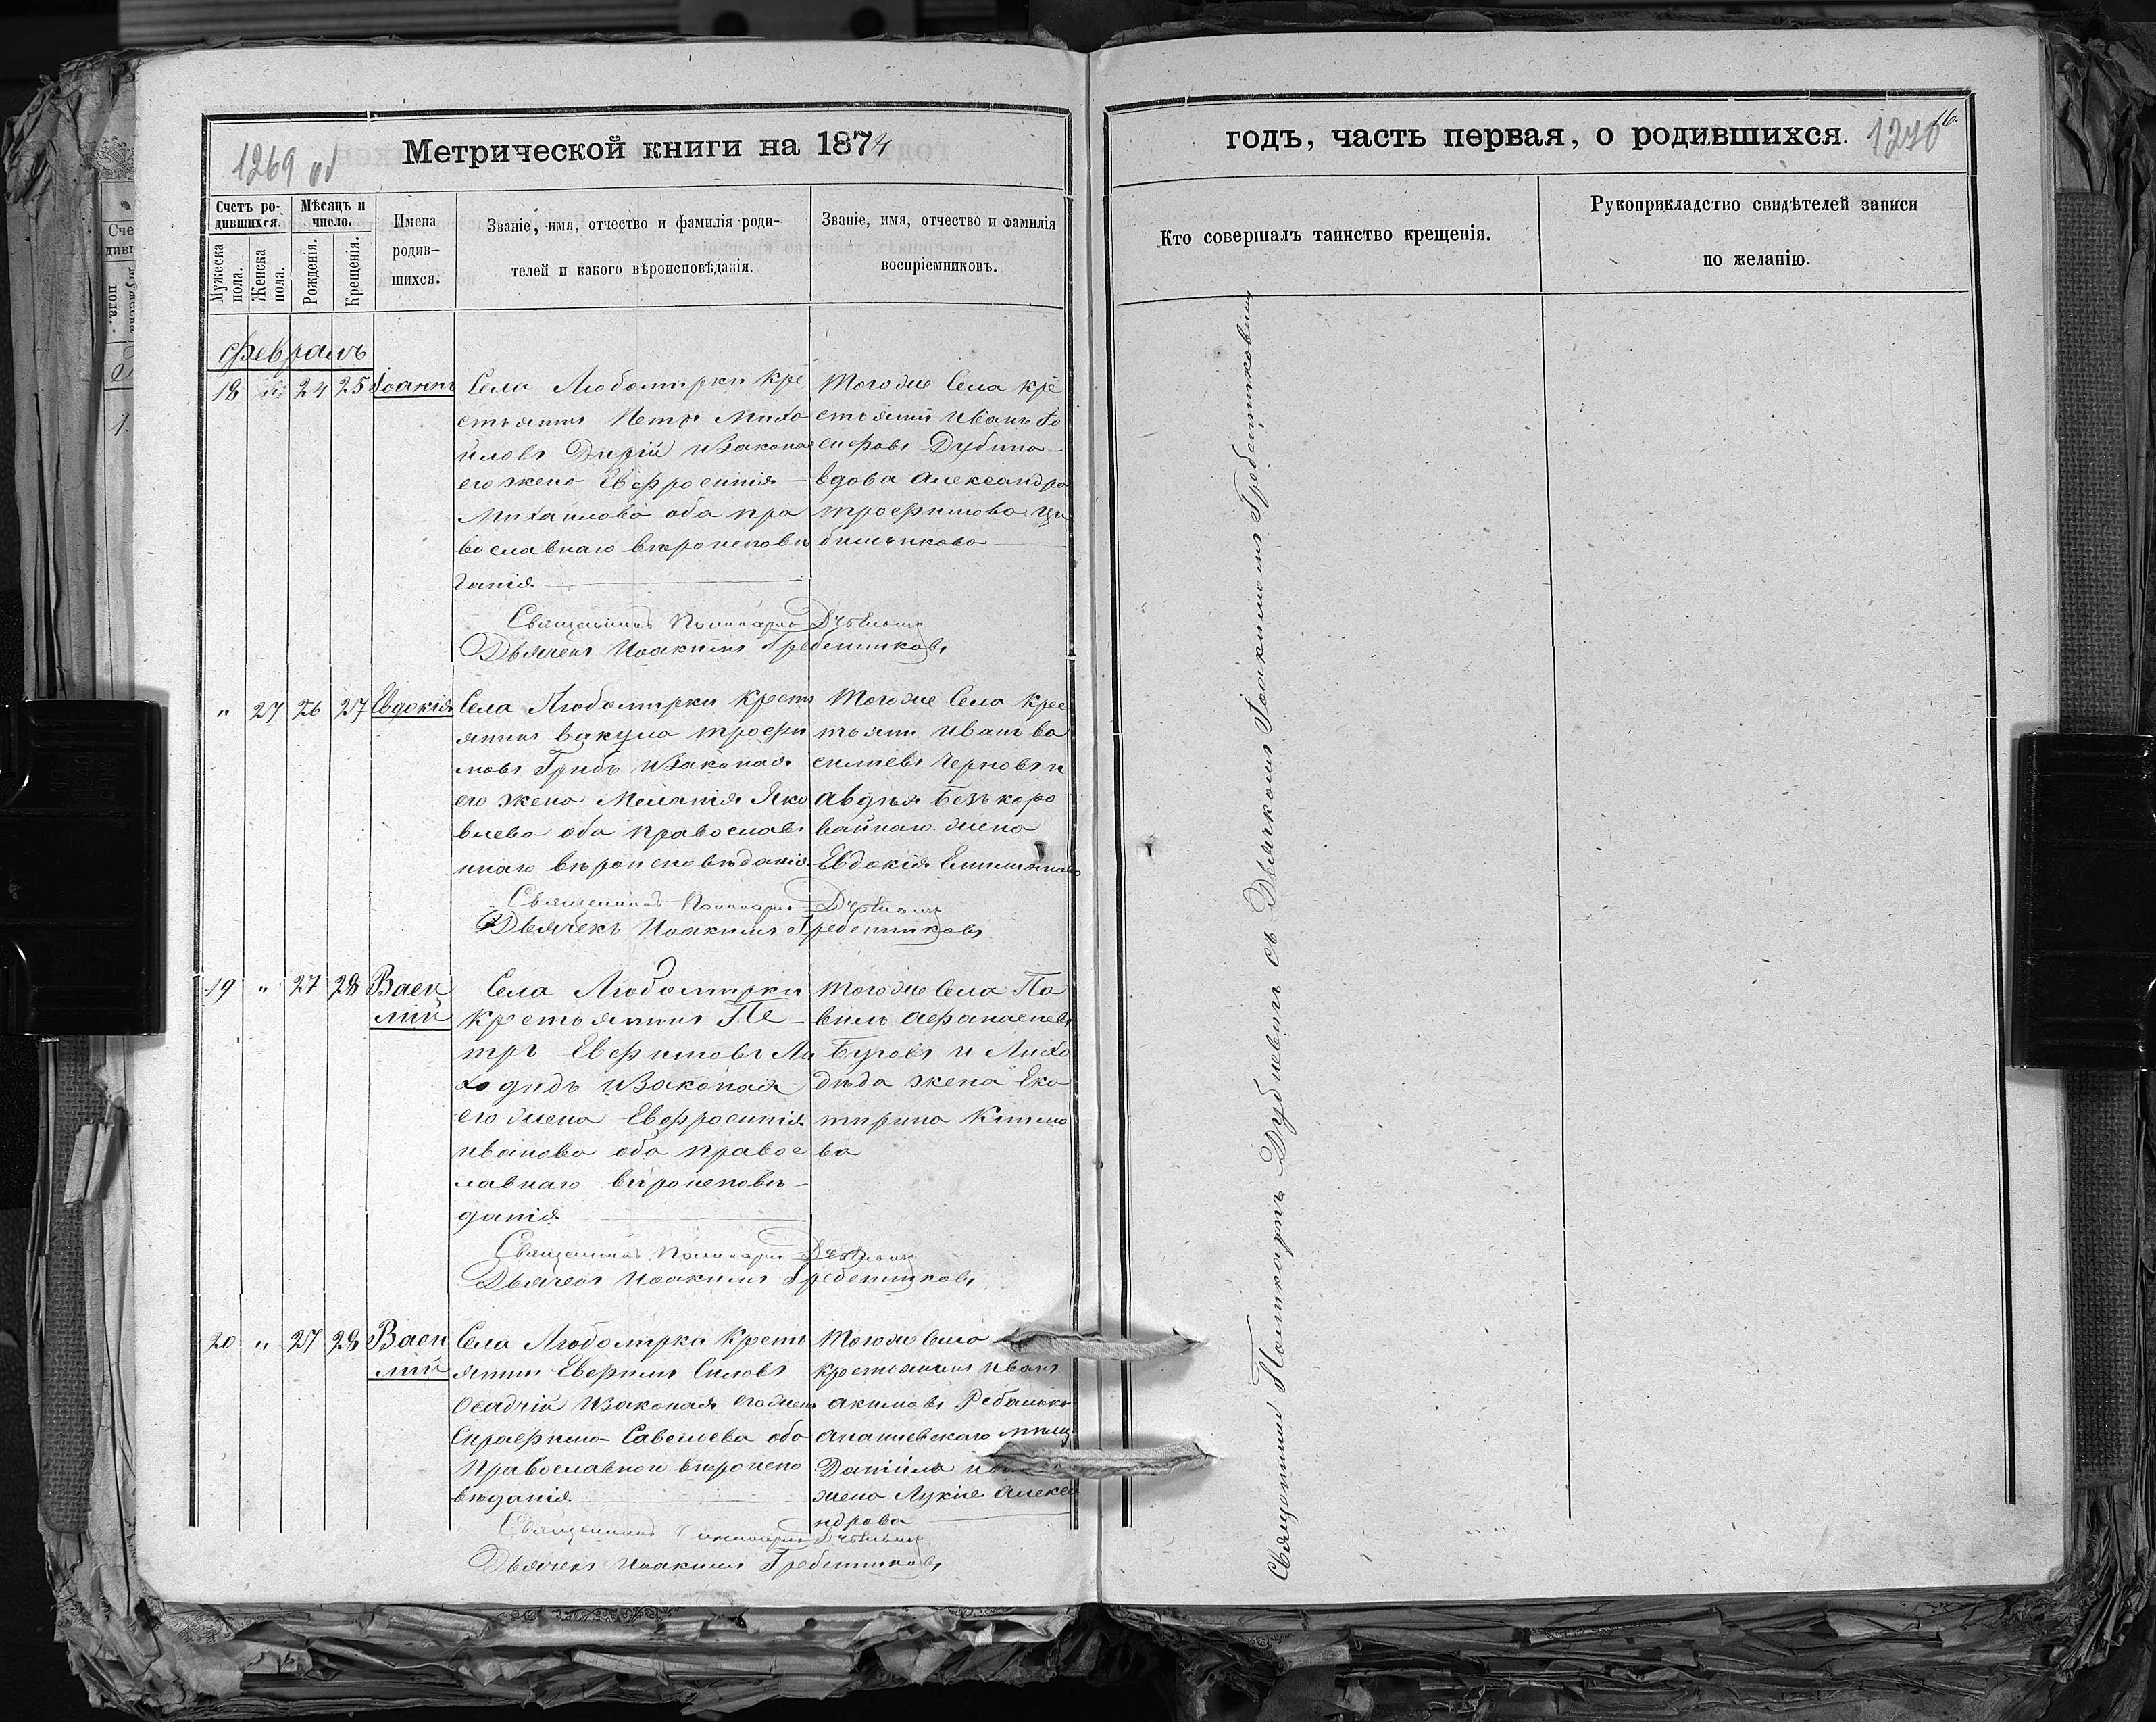 Метрической книги на 1874
1269 об
Счетъ ро-
дившихся.
Мужеска
пола.
Женска
пола.
Мѣсяцъ и
число.
Рожденія.
Крещенія.
Имена
родив-
шихся.
Званіе, имя, отчество и фамилія роди-
телей и какого вѣроисповѣданія.
Званіе, имя, отчество и фамилія
воспріемниковъ.
Февраль
18 24 25 Іоаннъ
Села Любомирки кре
стьянинъ Петръ Миха
йловъ Дирій и законая
его жена Евфросинія
Михаилова оба пра
вославнаго вѣроисповѣ
данія
Того же села кре
стьянинъ Иванъ
Дубина
вдова Александра
трофимова
Священникъ Поликарпъ
Дьячекъ Иоакимъ Гребенниковъ
" 27 26 27 Евдокія
Села Любомирки крест
янинъ Вакула трофи
мовъ Грибъ и законая
его жена Меланія Яко
влева оба православ
наго вѣроисповѣданія
Того же села крес
тьянинъ Иванъ ва
сильевъ Черновъ и
Авдѣя Безъкоро
вайнаго жена
Евдокія
Священникъ Поликарпъ
Дьячекъ Иоакимъ Гребенниковъ
19 " 27 28 Васи
лий
Села Любомирки
крестьянинъ Пе
тръ Евфимовъ Ли
ходидъ и законая
его жена Евфросинія
иванова оба правос
лавнаго вѣроисповѣ
данія
Того же села Па
велъ Афанасиевъ
Буговъ и Лихо
дѣда жена Ека
тирина Климо
ва
Священникъ Поликарпъ
Дьячекъ Иоакимъ Гребенниковъ
20 " 27 28 Васи
лий
Села Любомирка крест
янинъ Евфимъ Силовъ
Осадчій и законая его жена
Серафима Савелиева оба
Православнаго вѣроиспо
вѣданія
Того же села
крестьянинъ иванъ
акимовъ
Ананиевскаго
Даніила
жена Лукія Алекса
ндрова
Священникъ
Дьячекъ Иоакимъ Гребенниковъ
годъ, часть первая, о родившихся.
1270
16.
Кто совершалъ таинство крещенія.
Рукоприкладство свидѣтелей записи
по желанію.
Священникъ Поликарпъ Дубневичъ съ Дьячкомъ Іоакимомъ Гребенниковымъ